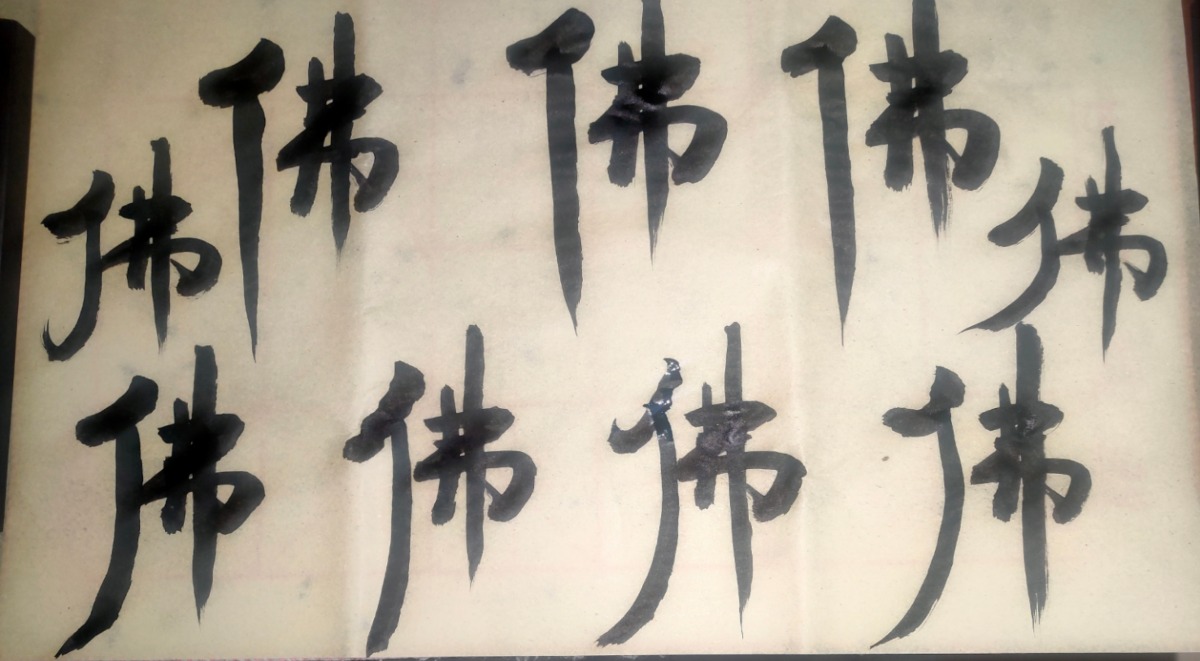 佛 佛 佛 佛 佛
佛 佛 佛 佛